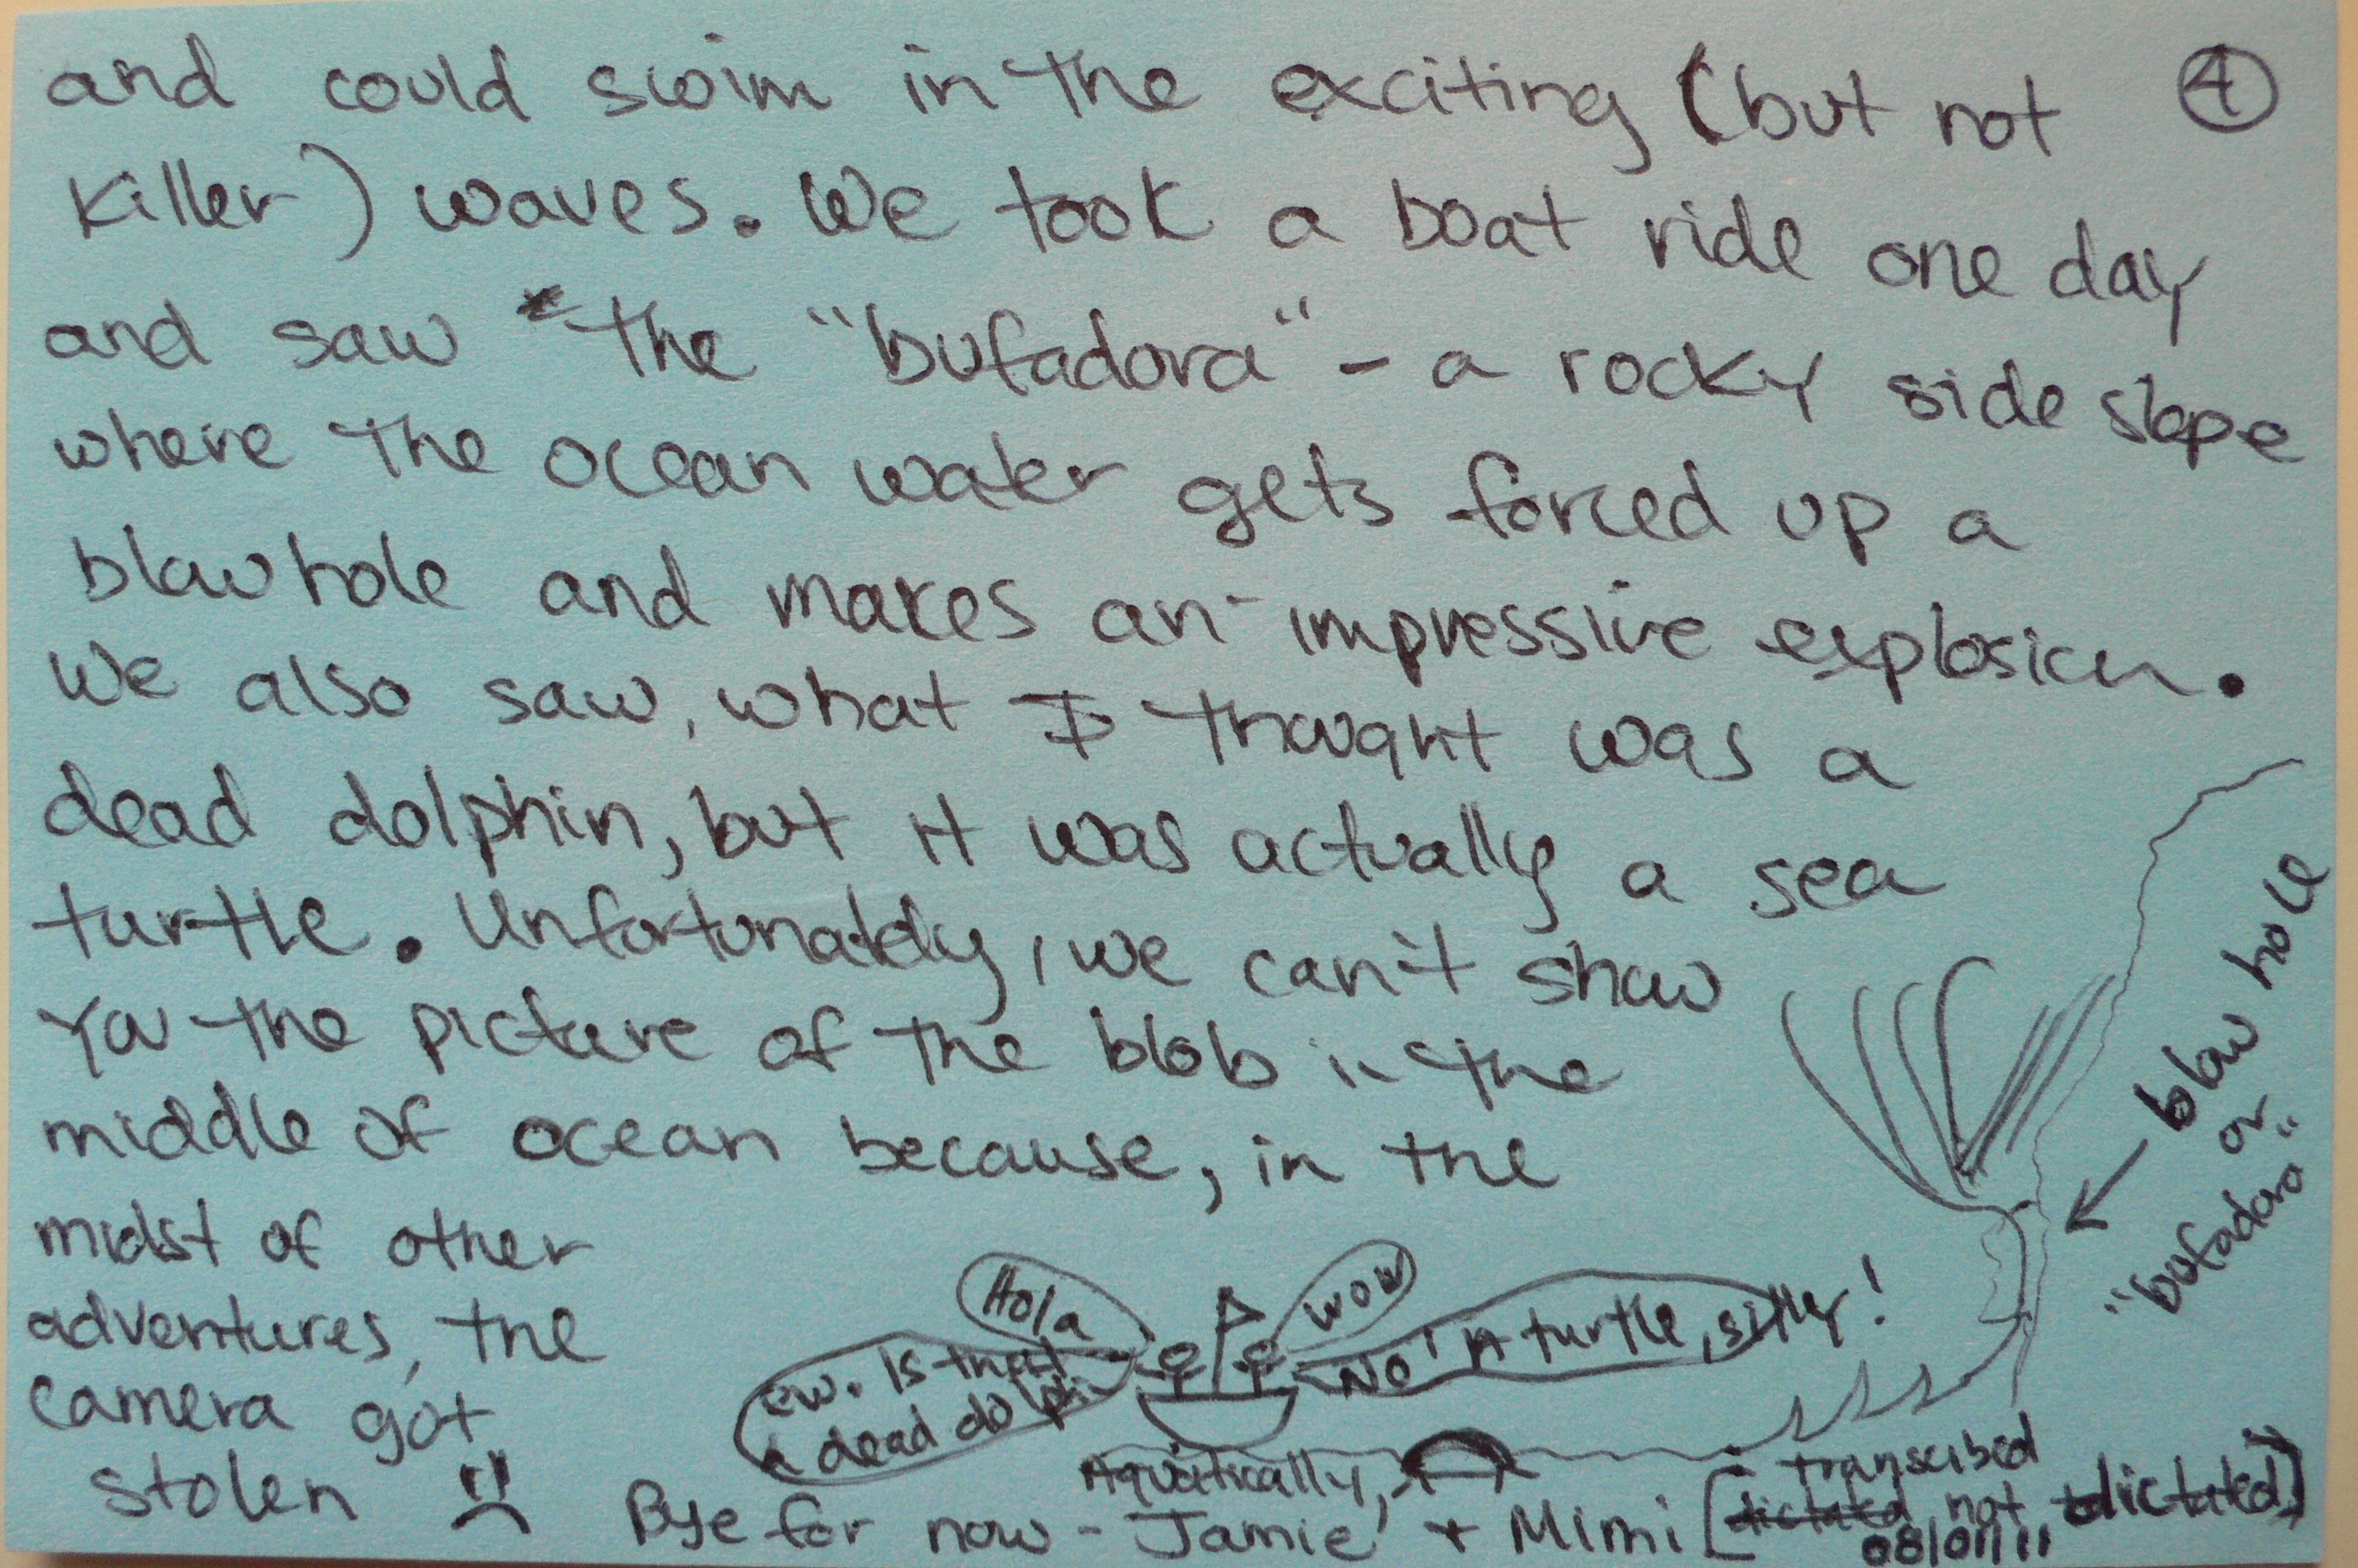 and could swim in the exciting (but not
④
killer) waves. We took a boat ride one day
and saw the "bufadora" - a rocky side slope
where the ocean water gets forced up a
blowhole and makes an impressive explosion.
We also saw, what I thought was a
dead dolphin, but it was actually a sea
turtle. Unfortunately, we can't show
you the picture of the blob in the
middle of ocean because, in the
midst of other
adventures, the
camera got
stolen
blow hole
or
"bufadora"
Hola
wow
ew. Is that
a dead dolphi
No! A turtle, silly!
Aquatically,
Bye for now - Jamie + Mimi
[transcribed
dictated not dictated]
08/01/11